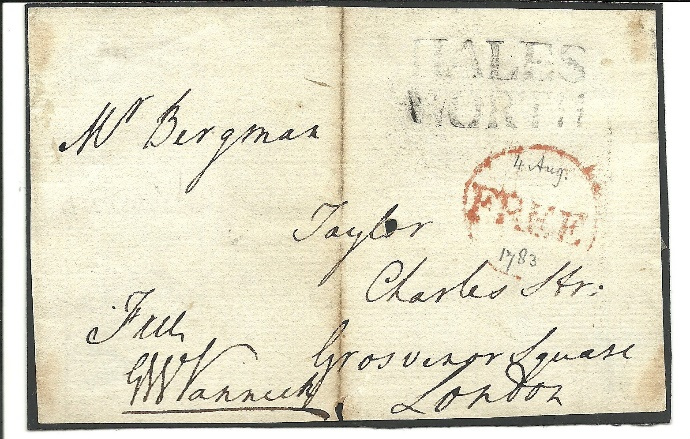 HALES
WORTH
Mr Bergman
4 Aug.
FREE
1783
Taylor
Charles Str:
Grosvenor Square
London
Free
GWVanneck